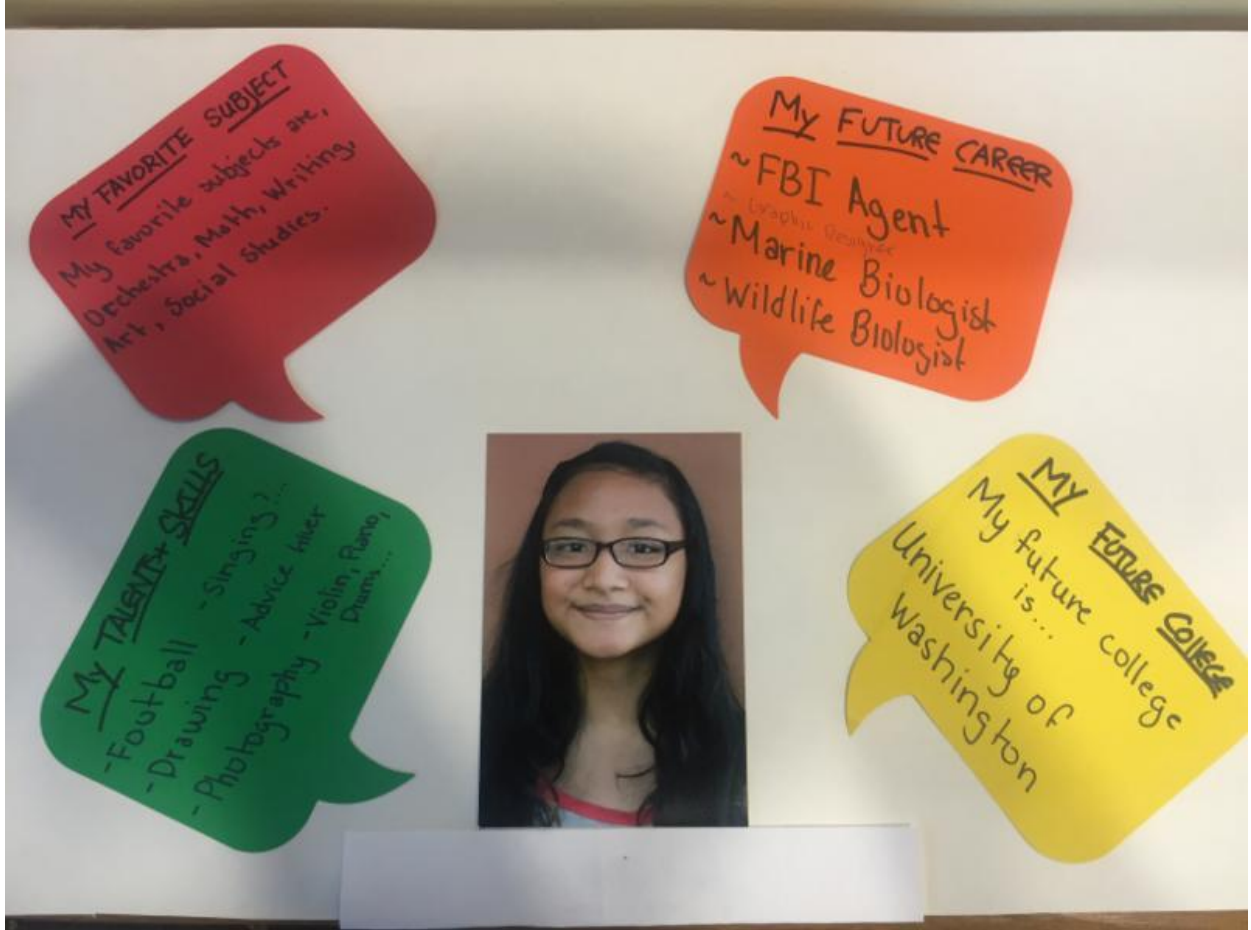 MY FAVORITE SUBJECT
My favorite subjects are,
Orchestra, Math, Writing,
Art, Social Studies.
My FUTURE CAREER
~FBI Agent
~ Graphic Designer
~Marine Biologist
~Wildlife BIologist
My TALENTS+ SKILLS
-Football -Singing?...
-Drawing -Advice Giver
-Photography -Violin, Piano,
Drums...
MY FUTURE COllEGE
My future college
is...
University of
Washington